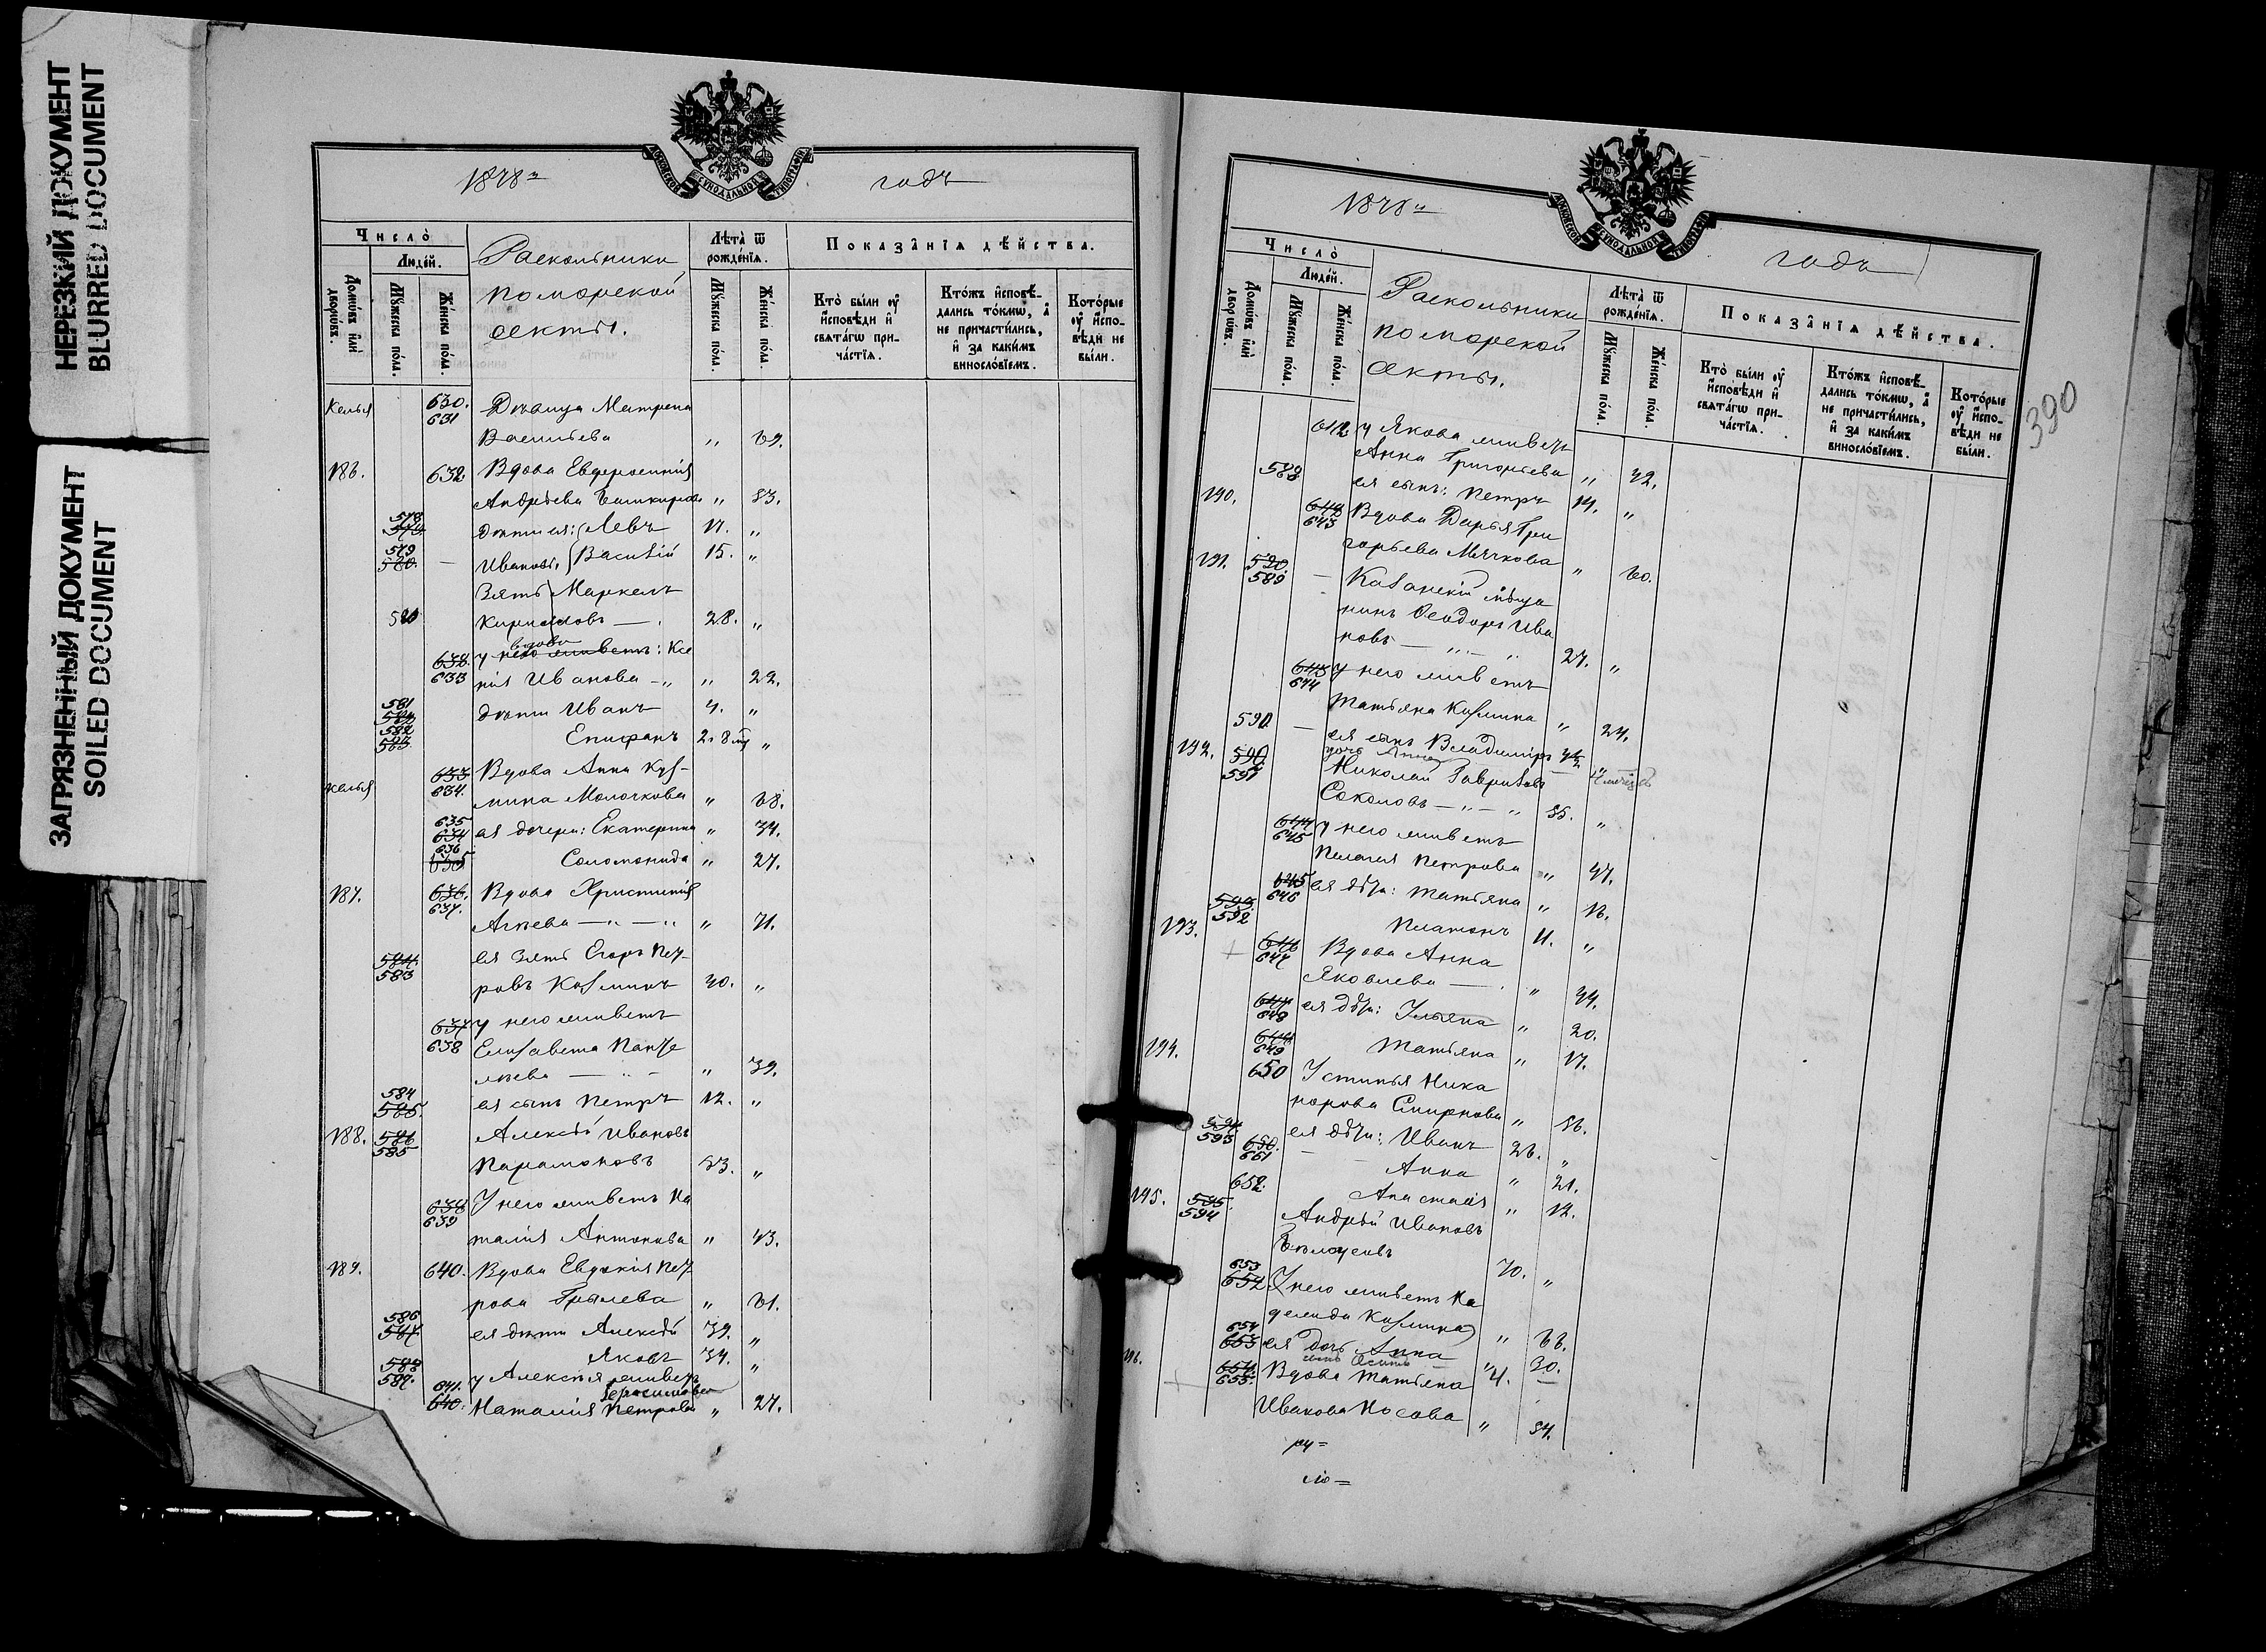 НЕРЕЗКИЙ ДОКУМЕНТ
BLURRED DOCUMENT
ЗАГРЯЗНЕННЫЙ ДОКУМЕНТ
SOILED DOCUMENT
годъ
Число̀
Людей.
Домѡвъ и҆лѝ дворѡвъ.
Мꙋжеска пола.
Женска пола.
Раскольники
поморской
секты.
Лѣта̀ ѿ рожденїѧ.
Мꙋжеска пола.
Женска пола.
Показанїѧ дѣйства.
Кто̀ были ᲂу҆ и҆сповѣди и҆ свѧтагѡ причастїѧ.
Ктожъ и҆сповѣдались токмѡ, а҆ не причастились, и҆ за какимъ винословїемъ.
Которые ᲂу҆ и҆сповѣди не были.
Келья 630. 631 Дѣвица Матрена
Васильева „ 69.
186. 632 Вдова Евфросинія
Андреева „ 83.
578 дѣти ея: Левъ 17. „
579 580. Ивановы, Василій 15. „
Зять Маркелъ
580 Кирилловъ — . 28. „
633 вдова: Ксе
нія Иванова „ „ 22.
581 дѣти Иванъ 4. „
582 583 Епифанъ „
Келья 633 634. Вдова Анна Куз-
мина Молочкова „ 68.
635 634 ея дочери: Екатерина „ 34.
636 635 Соломонида „ 27.
187. 636. 637. Вдова Христинія
„ 71.
584. 583 ея зять Егоръ Пет
ровъ Козминъ 40. „
637 638 у него живетъ
Елизавета Панте
леева „ 39.
584 585. ея сынъ Петръ 12. „
188. 586 585 Алексѣй Ивановъ
Парамоновъ „
638 639 У него живетъ На
талія Антонова „ 43.
189. 640. Вдова Евдокія Пет
рова „ 61.
586 587 ея дѣти Алексѣй 39. „
588 587. Яковъ 34. „
у Алексѣя живетъ
641. 640. Герасимова
Наталія Петрова „ 27.
390
годъ
Число̀
Людей.
Домѡвъ и҆лѝ дворѡвъ.
Мꙋжеска пола.
Женска пола.
Раскольники
поморской
секты.
Лѣта̀ ѿ рожденїѧ.
Мꙋжеска пола.
Женска пола.
Показанїѧ дѣйства.
Кто̀ были ᲂу҆ и҆сповѣди и҆ свѧтагѡ причастїѧ.
Ктожъ и҆сповѣдались токмѡ, а҆ не причастились, и҆ за какимъ винословїемъ.
Которые ᲂу҆ и҆сповѣди не были.
642 у Якова живетъ
Анна Григорьева „ 32.
588 ея сынъ: Петръ 14. „
190. 643 Вдова Дарья Гри
горьева Мячкова „ 60.
191. 590. 589 Казанскій мѣща
нинъ Ѳеодоръ Ива
новъ 27. „
643 644 у него живетъ
Татьяна Козмина „ 24.
590 ея сынъ Владиміръ
дочь
192. 590 591 Николай Гаврилов
Соколовъ 55. „
644 645 у него живетъ
Пелагея Петрова „ 47.
645 646 ея дѣти: Татьяна „ 16.
593 592 Платонъ 11. „
193. 646 647 Вдова Анна
Яковлева „ 44.
647 648 ея дѣти: Ульяна „ 20.
649 Татьяна „ 17.
194. 650 Устинья Ника
норова Смирнова „ 56.
594 593 ея дѣти: Иванъ 26. „
650. 651 Анна „ 21.
652. Анастасія „ 12.
195. 595. 594 Андрей Ивановъ
Бѣлоусовъ 70. „
653 652 У него живетъ На
дежда Козмина „ 66.
654 653 ея дочь Анна „ 30.
сынъ Осипъ 4. —
196. 654. 655. Вдова Татьяна
Иванова Носова „ 54.